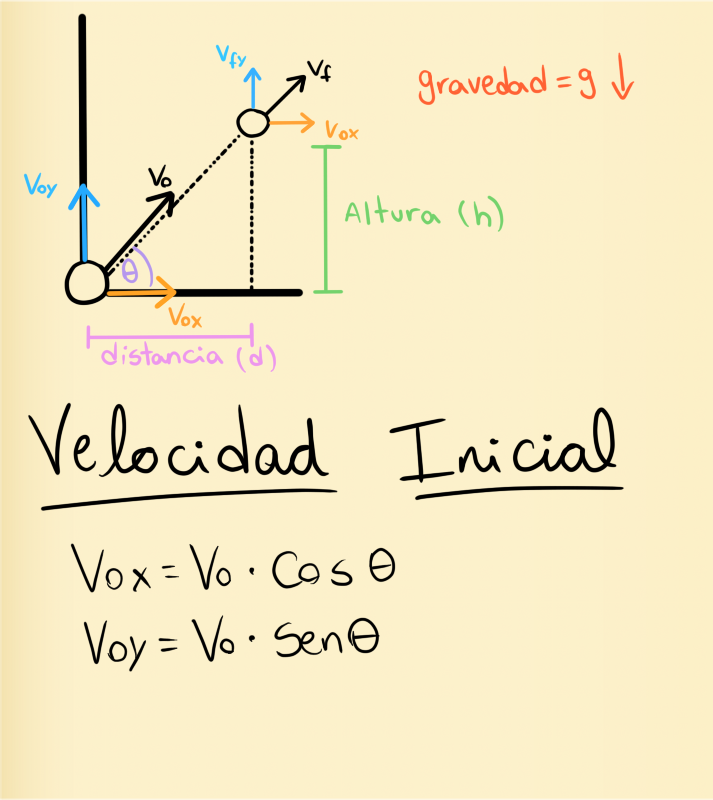 Vfy
Vf
gravedad = g ↓
Vox
Voy
Vo
Altura (h)
θ
Vox
distancia (d)
Velocidad Inicial
Vox = Vo · Cos θ
Voy = Vo · Senθ